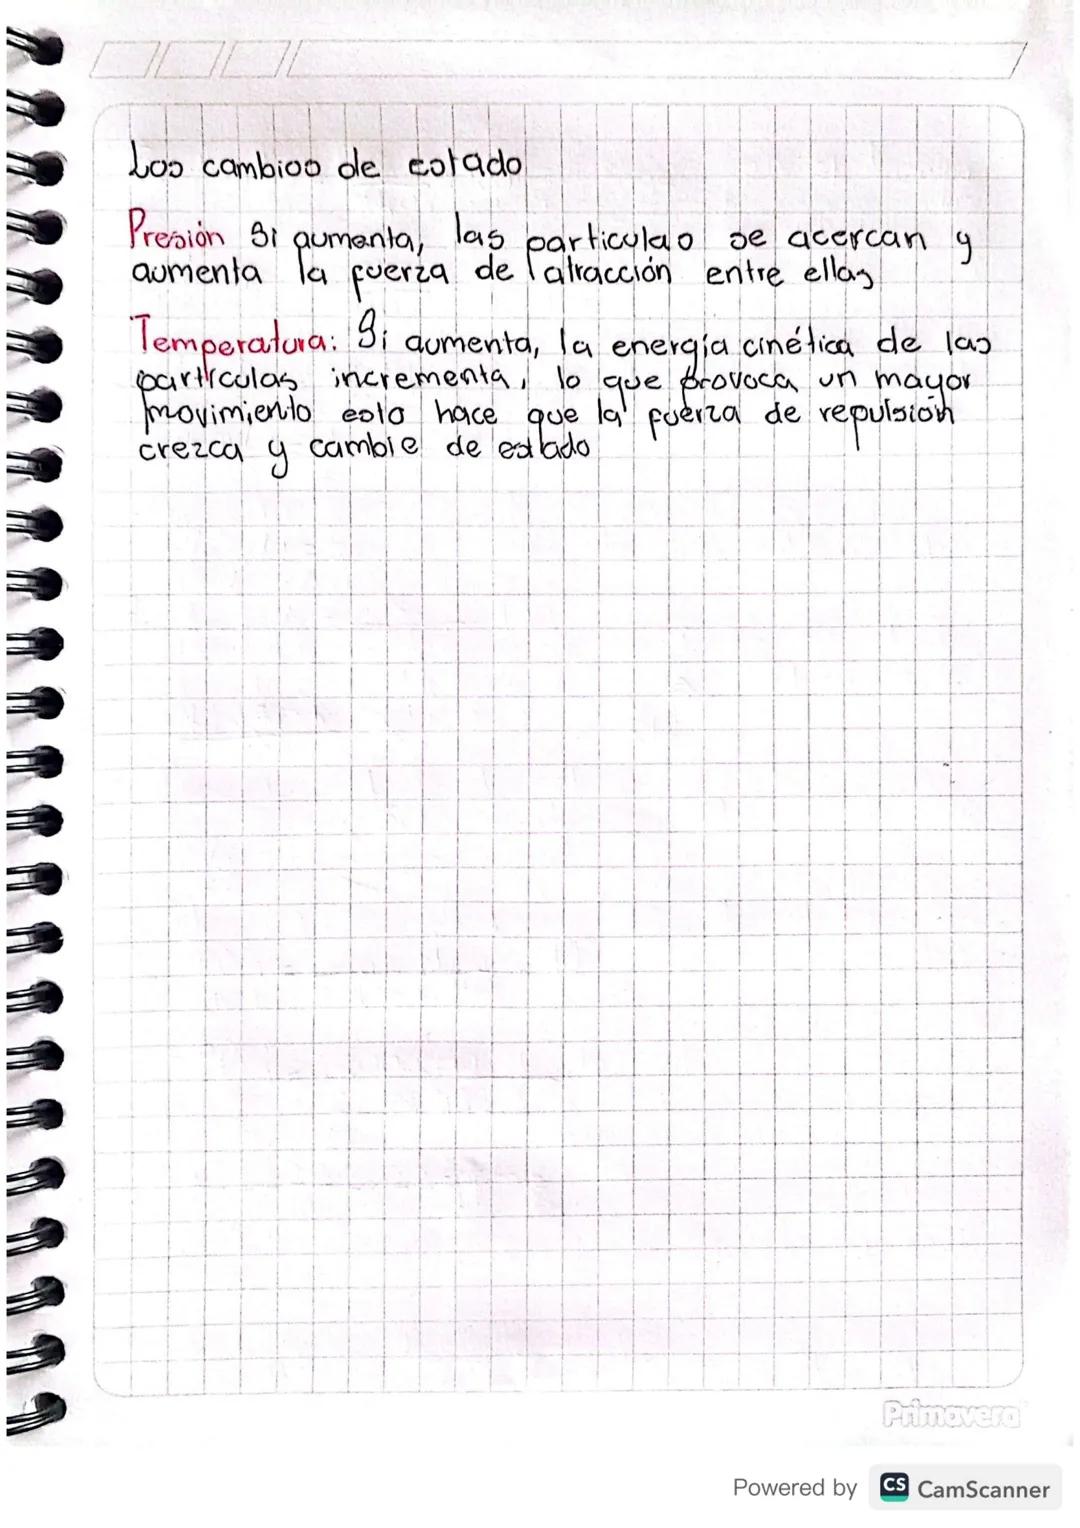 Los cambios de estado
Presión Si aumenta, las particulas se acercan y
aumenta la fuerza de atracción entre ellas
Temperatura: Si aumenta, la energía cinética de las
partículas incrementa, lo que provoca un mayor
movimiento esto hace que la fuerza de repulsión
crezca y cambie de estado
Primavera
Powered by CS CamScanner